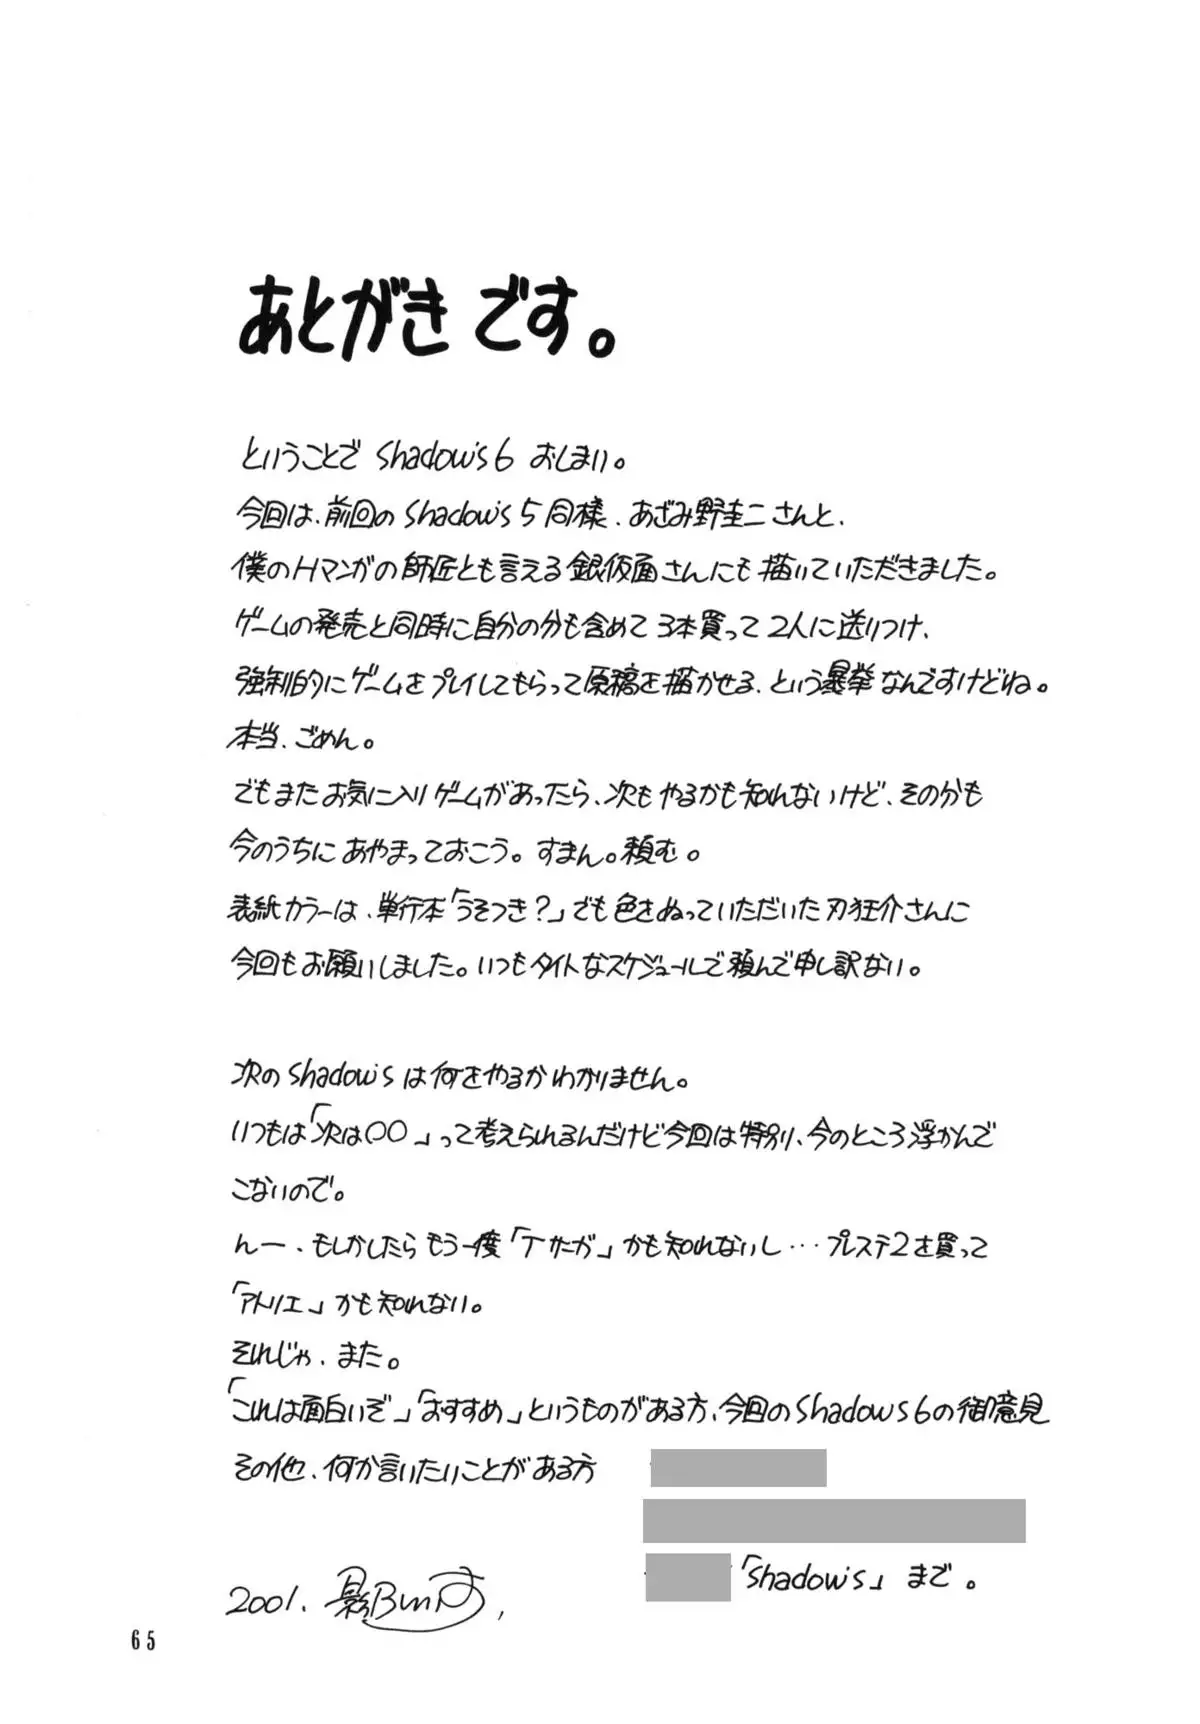 あとがきです。
ということで Shadow's 6 おしまい。
今回は、前回の Shadow's 5 同様、あざみ野圭二さんと、
僕のHマンガの師匠とも言える銀仮面さんにも描いていただきました。
ゲームの発売と同時に自分の分も含めて3本買って2人に送りつけ、
強制的にゲームをプレイしてもらって原稿を描かせる、という暴挙なんですけどね。
本当、ごめん。
でもまたお気に入りゲームがあったら、次もやるかも知れないけど、その分も
今のうちにあやまっておこう。すまん。頼む。
表紙カラーは、単行本「うそつき?」でも色をぬっていただいた刃狂介さんに
今回もお願いしました。いつもタイトなスケジュールで頼んで申し訳ない。
次の Shadow's は何をやるかわかりません。
いつもは「次は〇〇」って考えられるんだけど今回は特別、今のところ浮かんで
こないので。
んー、もしかしたらもう一度「Tサーガ」かも知れないし…プレステ2を買って
「アトリエ」かも知れない。
それじゃ、また。
「これは面白いぞ」「おすすめ」というものがある方、今回の Shadow's 6 の御意見
その他、何か言いたいことがある方
「Shadow's」まで。
2001.
65